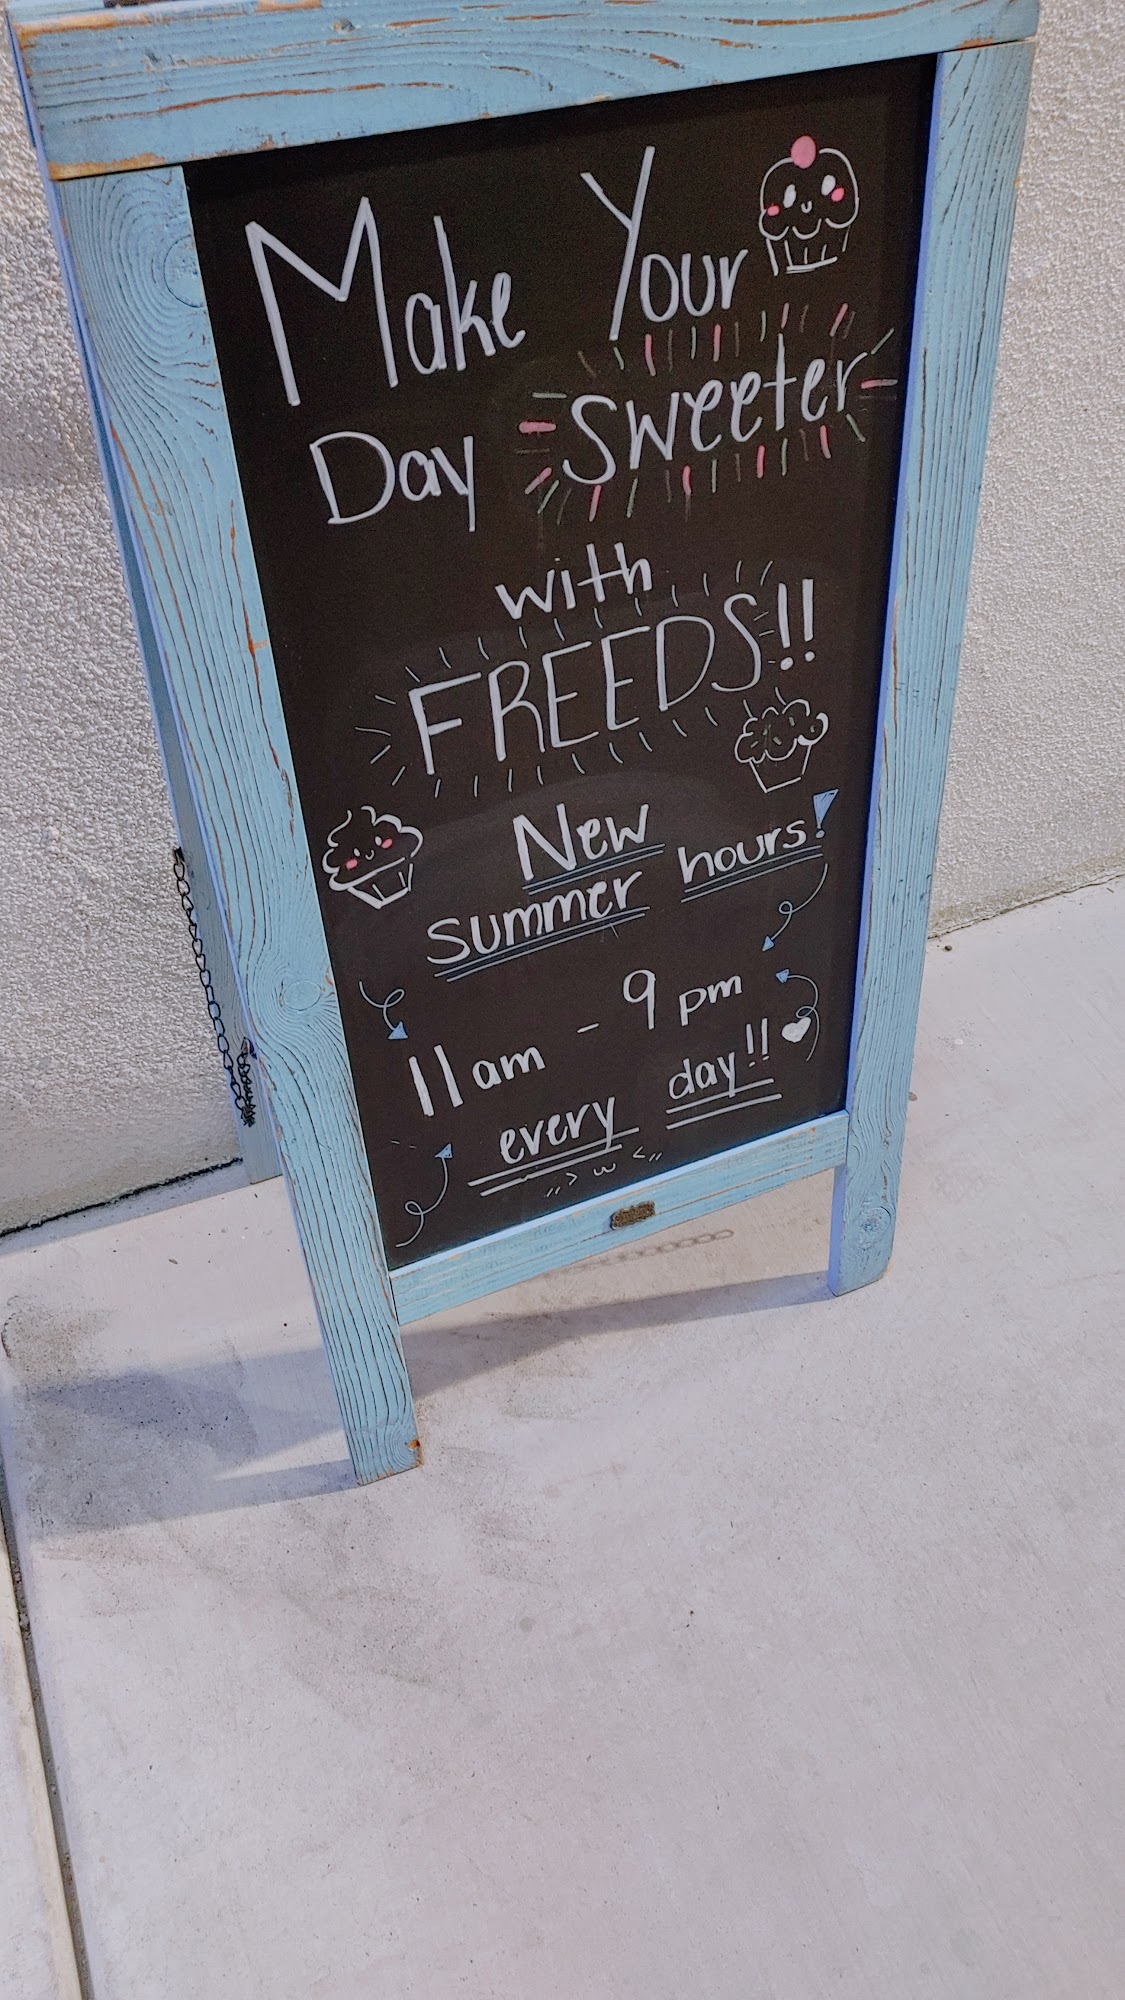 Make Your
Day sweeter
with
FREEDS!!
New
summer hours!
11am - 9pm
every day!!
>w<